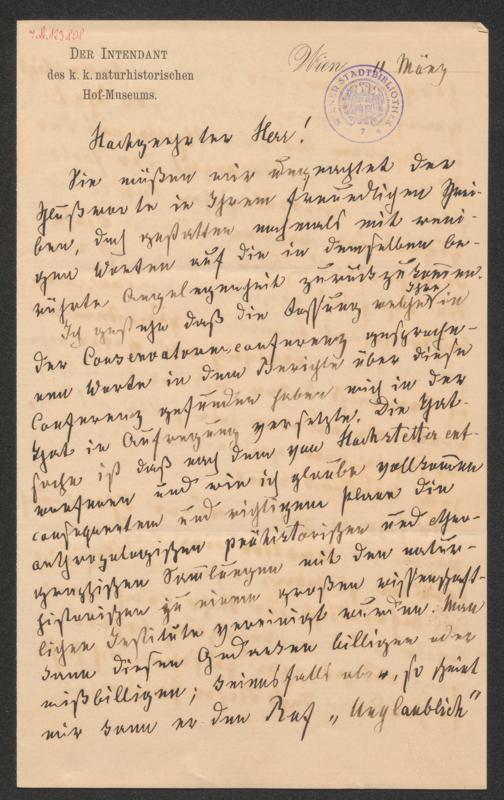 I.N. 123.808
DER INTENDANT
des k. k. naturhistorischen
Hof-Museums.
Wien 11 März
WIENER STADTBIBLIOTHEK
Hochgeehrter Herr!
Sie müßen mir ungeachtet der
Schlußworte in Ihrem freundlichen Schrei-
ben, doch gestatten nochmals mit weni-
gen Worten auf die in demselben be-
rührte Angelegenheit zurückzukommen.
Ich gestehe daß die Fassung welche Ihre in
der Conservatorenconferenz gesproche-
nen Worte in dem Berichte über diese
Conferenz gefunden haben mich in der
That in Aufregung versetzte. Die That-
sache ist daß nach dem von Hochstetter ent-
worfenen und wie ich glaube vollkommen
consequentem und richtigem plane die
anthropologischen prähistorischen und ethno-
graphischen Sammlungen mit den natur-
historischen zu einem großen wissenschaft-
lichen Institute vereinigt wurden. Man
kann diesen Gedanken billigen oder
mißbilligen; keinesfalls aber, so scheint
mir kann er den Ruf „Unglaublich"